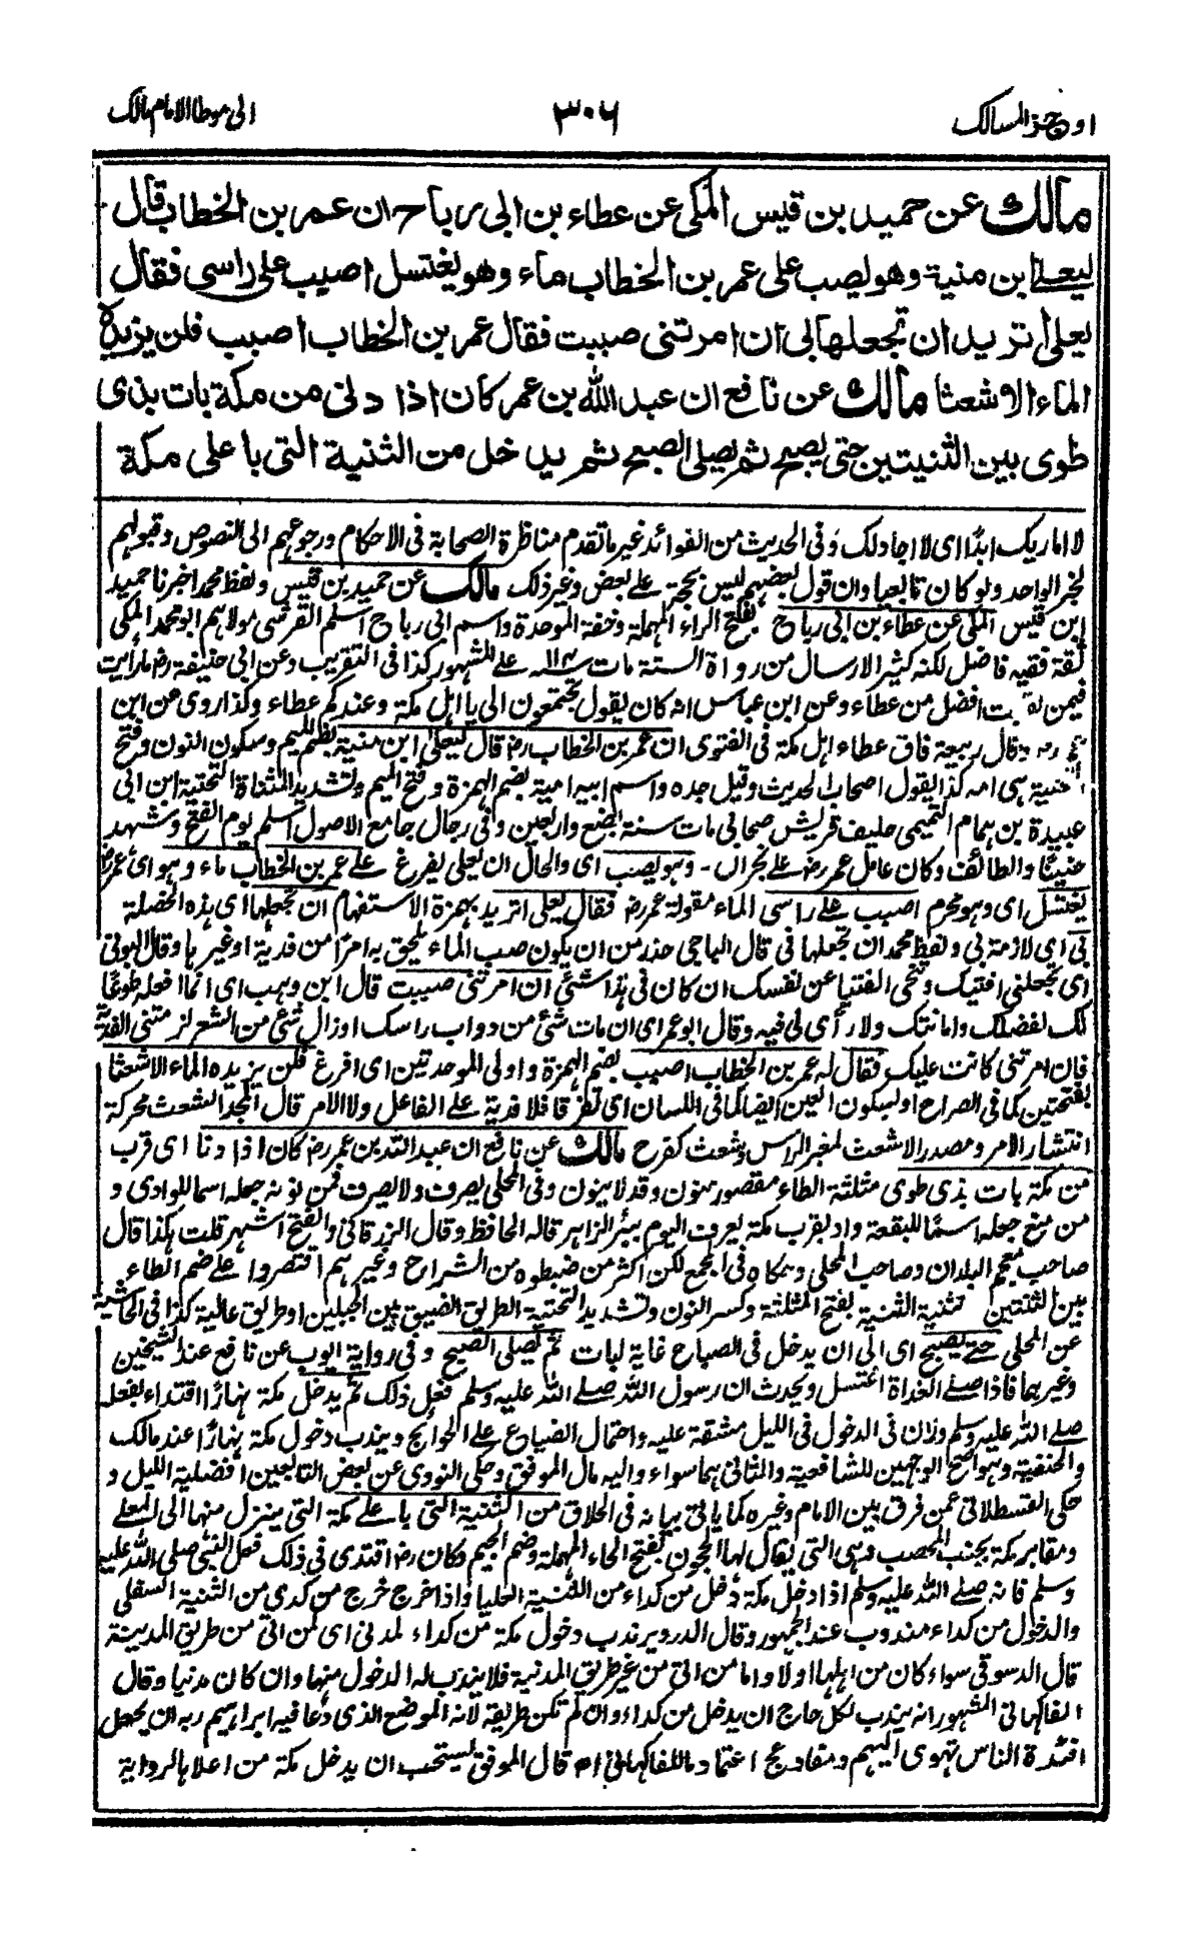 اوجز المسالك
٣٠٦
الى موطا الامام مالك
مالك عن حميد بن قيس المكى عن عطاء بن ابى رباح ان عمر بن الخطاب قال
ليعلى ابن منية وهو يصب على عمر بن الخطاب ماء وهو يغتسل اصبب على راسى فقال
يعلى أتريد ان تجعلها بى ان امرتنى صببت فقال عمر بن الخطاب اصبب فلن يزيده
الماء الا شعثا مالك عن نافع ان عبد الله بن عمر كان اذا دنى من مكة بات بذى
طوى بين الثنيتين حتى يصبح ثم يصلى الصبح ثم يدخل من الثنية التى با على مكة
لا اماريك ابدًا اى لا اجادلك وفى الحديث من الفوائد غير ما تقدم مناظرة الصحابة فى الاحكام ورجوعهم الى النصوص وقبولهم
لخبر الواحد ولو كان تابعيا وان قول بعضهم ليس بحجة على بعض وغير ذلك مالك عن حميد بن قيس ولفظ محمد اخبرنا حميد
ابن قيس المكى عن عطاء بن ابى رباح بفتح الراء المهملة وخفة الموحدة واسم ابى رباح اسلم القرشى مولاهم ابو محمد المكى
ثقة فقيه فاضل لكنه كثير الارسال من رواة الستة مات ١١٤ على المشهور كذا فى التقريب وعن ابى حنيفة رض ما رأيت
فيمن لقيت افضل من عطاء وعن ابن عباس انه كان يقول تجتمعون الى يا اهل مكة وعندكم عطاء وكذا روى عن ابن
وقال ربيعة فاق عطاء اهل مكة فى الفتوى ان عمر بن الخطاب رض قال ليعلى ابن منية بضم الميم وسكون النون وفتح
التحتية هى امه كذا يقول اصحاب الحديث وقيل جده واسم ابيه امية بضم الهمزة وفتح الميم وتشديد المثناة التحتية ابن ابى
عبيدة بن همام التميمى حليف قريش صحابى مات سنة بضع واربعين وفى رجال جامع الاصول اسلم يوم الفتح وشهد
حنينًا والطائف وكان عامل عمر رض على نجران - وهو يصب اى والحال ان يعلى يفرغ على عمر بن الخطاب ماء وهو اى عمر رض
يغتسل اى وهو محرم اصبب على راسى الماء مقولة عمر رض فقال يعلى اتريد بهمزة الاستفهام ان تجعلها اى هذه الخصلة
بى اى لازمة بى ولفظ محمد ان تجعلها فى قال الباجى حذر من ان يكون صب الماء يلحق به امرًا من فدية او غيرها وقال البونى
اى تجعلنى افتيك وتنحى الفتيا عن نفسك ان كان فى هذا شئ ان امرتنى صببت قال ابن وهب اى انما افعله طوعًا
لك لفضلك وامانتك ولا رأى لى فيه وقال ابو عمر اى ان مات شئ من دواب راسك اوزال شئ من الشعر لزمتنى الفدية
فان امرتنى كانت عليك فقال له عمر بن الخطاب اصبب بضم الهمزة واولى الموحدتين اى افرغ فلن يزيده الماء الا شعثا
بفتحتين كما فى الصراح او بسكون العين ايضا كما فى اللسان اى تفرقا فلا فدية على الفاعل ولا الامر قال المجد الشعث محركة
انتشار الامر ومصدر الاشعث لمغبر الراس وشعث كفرح مالك عن نافع ان عبد الله بن عمر رض كان اذا دنا اى قرب
من مكة بات بذى طوى مثلثة الطاء مقصور منون وقد لا ينون وفى المحلى يصرف ولا يصرف فمن نونه جعله اسما للوادى و
من منع جعله اسمًا للبقعة واد بقرب مكة يعرف اليوم ببئر الزاهر قاله الحافظ وقال الزرقانى والفتح اشهر قلت هكذا قال
صاحب معجم البلدان وصاحب المحلى وحكاه فى المجمع لكن اكثر من ضبطوه من الشراح وغيرهم اقتصروا على ضم الطاء
بين الثنتين تثنية الثنية بفتح المثلثة وكسر النون وتشديد التحتية الطريق الضيق بين الجبلين او طريق عالية كذا فى الحاشية
عن المحلى حتى يصبح اى الى ان يدخل فى الصباح غاية لبات ثم يصلى الصبح وفى رواية ايوب عن نافع عند الشيخين
وغيرهما فاذا صلى الغداة اغتسل ويحدث ان رسول الله صلى الله عليه وسلم فعل ذلك ثم يدخل مكة نهارًا اقتداء بفعله
صلى الله عليه وسلم ولان فى الدخول فى الليل مشقة عليه واحتمال الضياع على الحوائج ويندب دخول مكة نهارًا عند مالك
والحنفية وهو اصح الوجهين للشافعية والثانى هما سواء واليه مال الموفق وحكى النووى عن بعض التابعين افضلية الليل و
حكى القسطلانى عمن فرق بين الامام وغيره كما ياتى بيانه فى الحلاق من الثنية التى با على مكة التى ينزل منها الى المعلى
ومقابر مكة بجنب المحصب وهى التى يقال لها الحجون بفتح الحاء المهملة وضم الجيم وكان رض اقتدى فى ذلك فعل النبى صلى الله عليه
وسلم فانه صلى الله عليه وسلم اذا دخل مكة دخل من كداء من الثنية العليا واذا خرج خرج من كدى من الثنية السفلى
والدخول من كداء مندوب عند الجمهور وقال الدردير ندب دخول مكة من كداء لمدنى اى لمن اتى من طريق المدينة
قال الدسوقى سواء كان من اهلها اولا واما من اتى من غير طريق المدنية فلا يندب له الدخول منها وان كان مدنيا وقال
الفاكهانى المشهور انه يندب لكل حاج ان يدخل من كداء وان لم تكن طريقه لانه الموضع الذى دعا فيه ابراهيم ربه ان يجعل
افئدة الناس تهوى اليهم ومفاد عج اعتماد ما للفاكهانى اه قال الموفق يستحب ان يدخل مكة من اعلاها لرواية